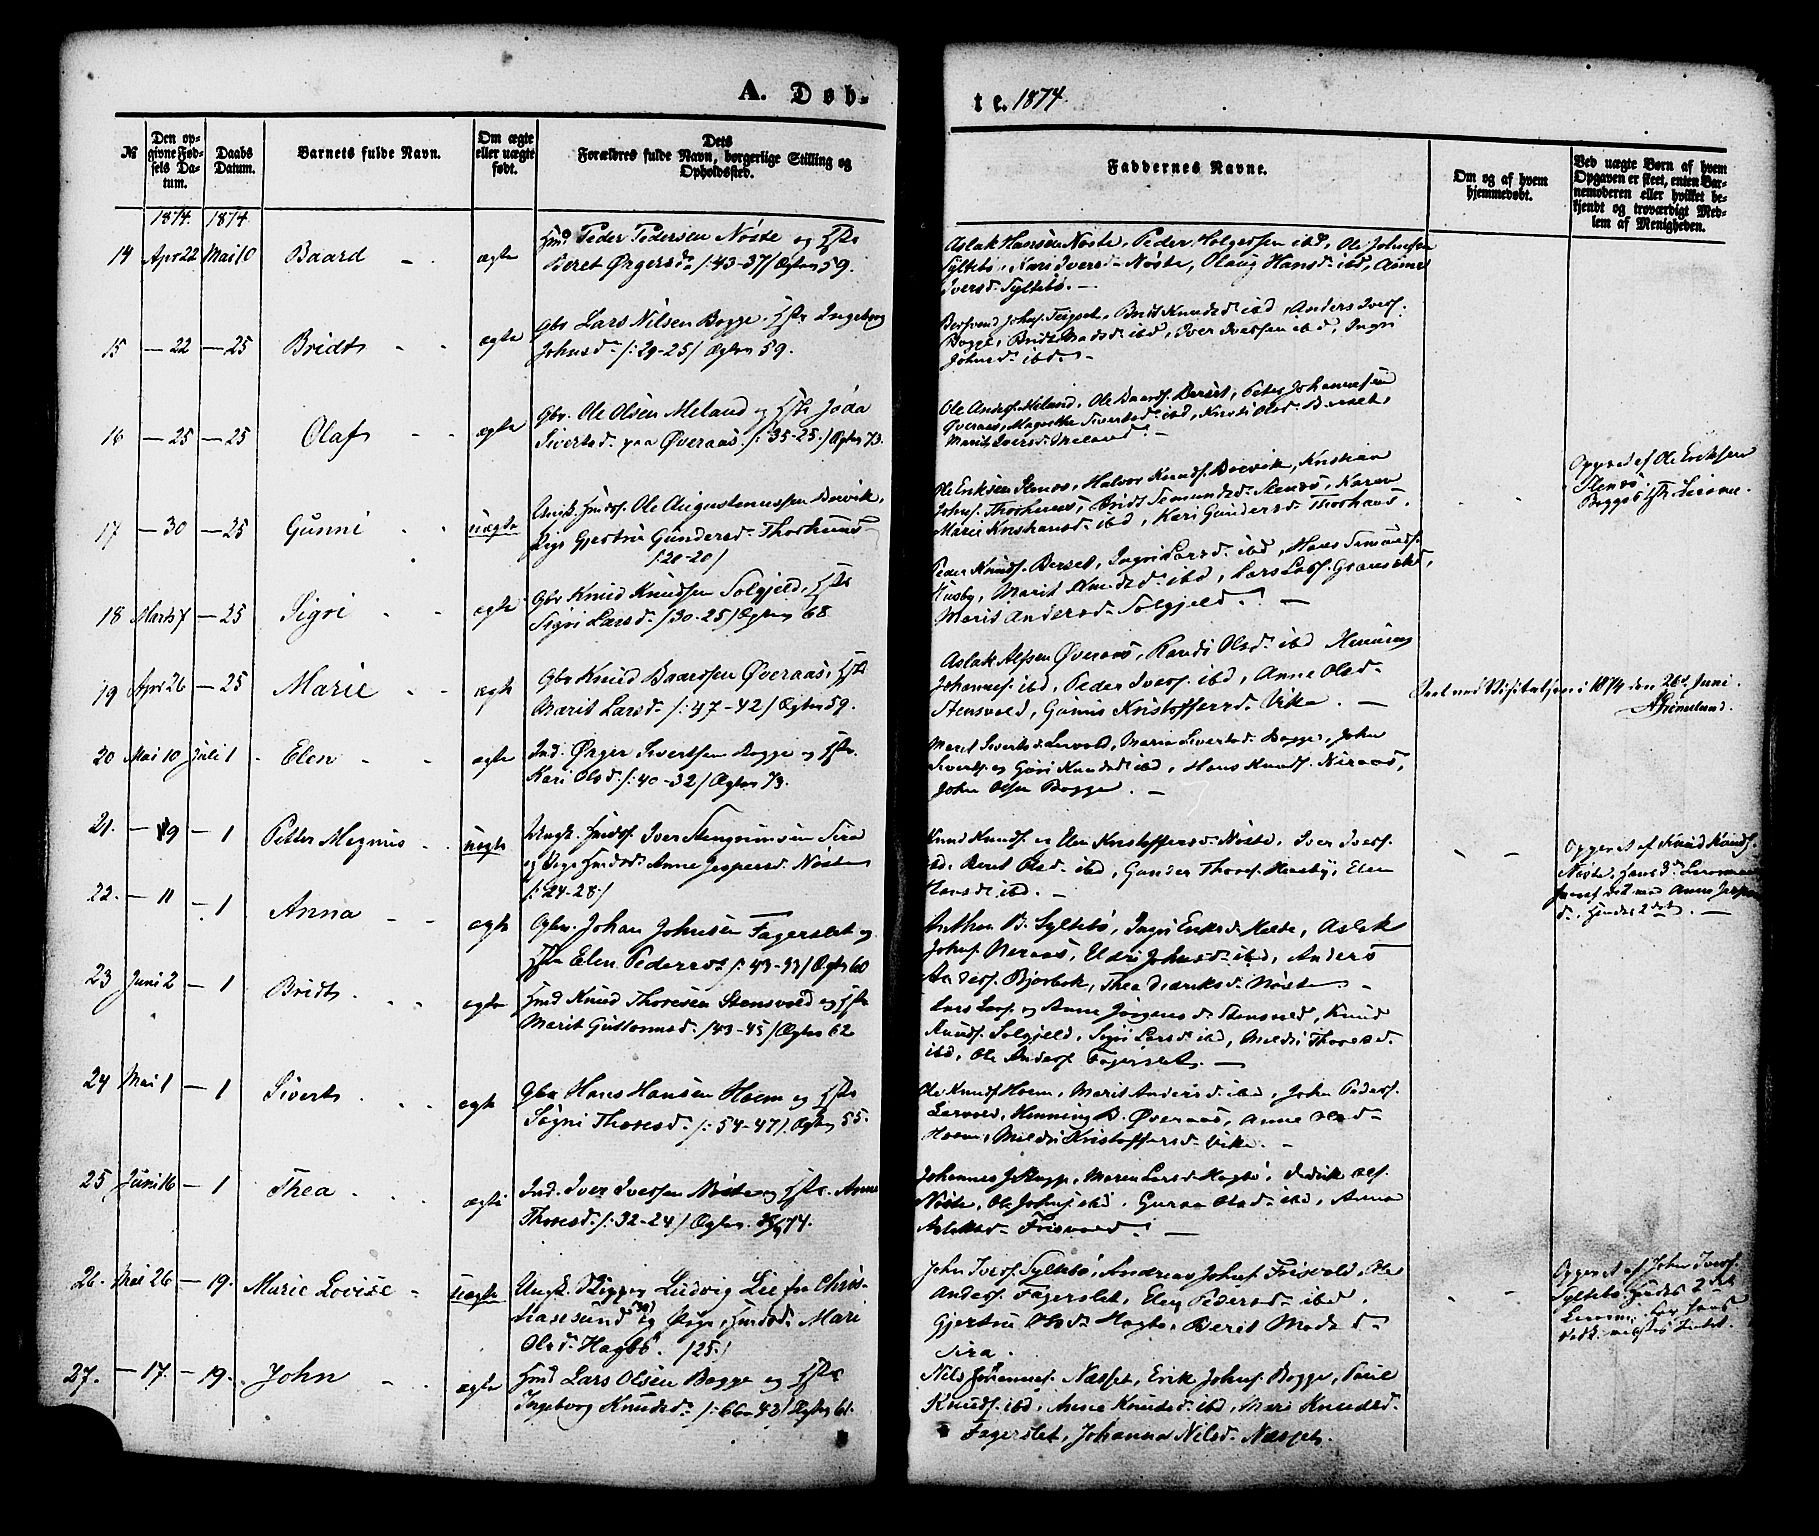 A. Døb-
te. 1874
№
Den op-
givne Fød-
sels Da-
tum.
Daabs
Datum.
Barnets fulde Navn.
Om ægte
eller uægte
født.
Dets
Forældres fulde Navn, borgerlige Stilling og
Opholdssted.
Faddernes Navne.
Om og af hvem
hjemmedøbt.
Ved uægte Børn af hvem
Opgaven er skeet, enten Bar-
nemoderen eller hvilket be-
kjendt og troværdigt Med-
lem af Menigheden.
1874. 1874.
14 Apr 22 Mai 10 Baard ægte
Hmd Peder Pedersen Nøste og Hstr
Beret Ørgersd /:43-37/ Ægter 59.
Aslak Hansen Nøste, Peder Holgersen ibd, Ole Johnsen
Syltebø, Kari Iversd Nøste, Olaug Hansd ibd, Anne
Iversd Syltebø.
15 — 22 — 25 Bridt ægte
Gbr Lars Nilsen Bogge, Hstr Ingeborg
Johnsd /:29-25/ Ægter 59.
Johnsf Teigset, Brit Knudsd ibd, Anders Iversf
Bogge, Brit Madsd ibd, Iver Iversen ibd, Ingri
Johnsd ibd
16 — 25 — 25 Olaf ægte
Gbr. Ole Olsen Meland og Hstr Joda
Sivertsd paa Øveraas /:35-25/ Ægter 73.
Ole Andersf Meland, Ole Baardsf Berset, Peter Johannesen
Øveraas, Magrethe Sivertsd ibd, Kirsti Olsd Berset,
Marit Iversd Meland
17 — 30 — 25 Gunni uægte
Ungk. Hmdsf. Ole Augustinussen Boevik,
Pige Gjertru Gundersd Thorhuus
/:20-20/
Ole Eriksen Stenøs, Halvor Knudsf. Boevik, Kristian
Johnsf. Thorhuus, Bridt Semundsd Stenøs, Karen
Marie Kristiansd ibd, Kari Gundersd Thorhuus.
Opgivet af Ole Eriksen
Stenøs
18 Marts 7 — 25 Sigri ægte
Gbr Knud Knudsen Solgjeld, Hstr
Sigri Larsd /30-25/ Ægter 68
Peder Knudsf. Berset, Ingri Larsd ibd, Hans
Husby, Marit Knudsd ibd, Lars Larsf.
Marit Andersd Solgjeld.
19 Apr 26 — 25 Marie ægte
Gbr Knud Baardsen Øveraas, Hstr
Marit Larsd /:47-42/ Ægter 59.
Aslak Alfsen Øveraas, Randi Olsd ibd Henning
Johannesf. ibd, Peder Iversf ibd, Anne Olsd
Stensvold, Kristoffersd Vike.
ved Visitatsen i 1874 den 26d Juni.
20 Mai 10 Juli 1 Elen ægte
Ind. Ørger Sivertsen Bogge og Hstr.
Kari Olsd /:40-32/ Ægter 73.
Marit Sivertsd Lervold, Maria Sivertsd Bogge, John
Sivertsf og Knudsd ibd, Hans Knudsf. Neraas,
John Olsen Bogge.
21. — 19 — 1 Petter Magnus uægte
Ungk. Hmdsf. Iver Stengrimsen Sira
og Pige Hmdsd. Anne Jespersd. Nøste
/:24-28/
Knud Knudsf. og Elen Kristoffersd Nøste, Iver Iversf.
ibd, Beret Olsd ibd, Gunder Thorsf Husby, Elen
Hansd ibd.
Opgivet af Knud Knudsf.
Nøste, hans 2det
22. — 11 — 1 Anna ægte
Gbr. Johan Johnsen Fagerslet og
Hstr Elen Pedersd /:43-33/ Ægter 60
Anthon B. Syltebø, Ingri Eriksd Helde, Aslak
Johnsf. Neraas, Eldri Johnsd ibd, Anders
Andersf. Bjorbek, Thea Didriksd. Nøste
23 Juni 2 — 1 Bridt ægte
Hmd Knud Thoresen Stensvold og Hstr
Marit Guttormsd. /43-45/ Ægter 62
Lars Larsf og Anne Jørgensd Stensvold, Knud
Knudsf. Solgjeld, Sigri Larsd ibd, Mildri Thoresd
ibd, Ole Andersf. Fagerslet.
24 Mai 1 — 1 Sivert ægte
Gbr Hans Hansen Hoem og Hstr
Sigri Thoresd. /:54-47/ Ægter 55.
Ole Knudsf Hoem, Marit Andersd ibd, John Pedersf.
Lervold, Henning B. Øveraas, Anne Olsd
Hoem, Mildri Kristoffersd Vike.
25 Juni 16 — 1 Thea ægte
Ind. Iver Iversen Nøste og Hstr. Anne
Thoresd. /:32-24/ Ægter. 74.
Johannes, Maren Larsd Hagbø, Didrik Olsf.
Nøste, Ole Johnsf ibd, Guraa Olsd ibd, Anna
Aslaksd Frisvold.
26. Mai 26 — 19. Marie Lovise uægte
Ungk. Ludvig Lie fra Chris-
tiansund (30) og Pige, Hmdsd. Mari
Olsd. Hagbø. (25.)
John Iversf Syltebø, Andreas Johnsf Frisvold, Ole
Andersf. Fagerslet, Elen Pedersd ibd.
Gjertru Olsd Hagbø, Berit Madsd
Sira.
Opgivet af John Iversf.
Syltebø. Hendes 2det
27. — 17. — 19. John ægte
Hmd Lars Olsen Bogge og Hstr
Ingeborg Knudsd /:66-42/ Ægter 61.
Nils Johannesf. Næsset, Erik Johnsf Bogge, Paul
Knudsf. ibd, Anne Knudsd ibd, Mari Knudsd
Fagerslet, Johanna Nilsd Næsset.